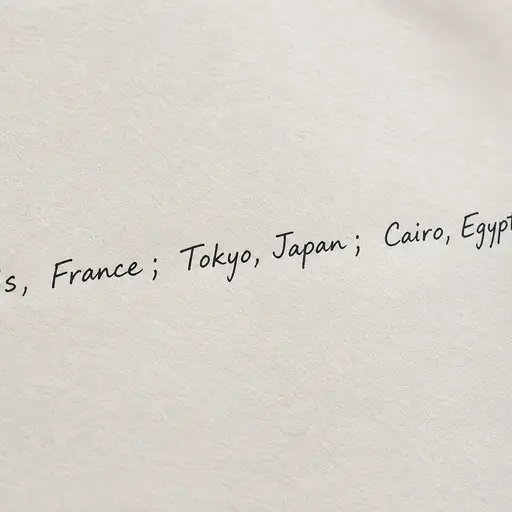 s, France; Tokyo, Japan; Cairo, Egypt